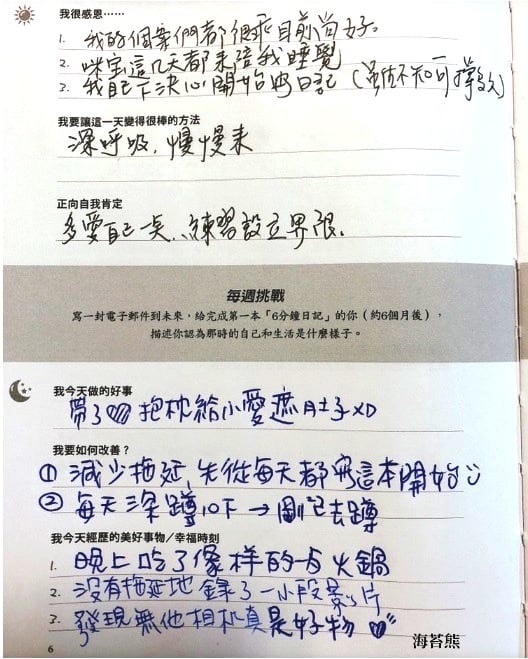 我很感恩……
1. 我的個案們都很乖目前尚好。
2. 咪宝這几天都來陪我睡覺
3. 我自己下決心開始写日記(虽然不知可撐多久)
我要讓這一天變得很棒的方法
深呼吸,慢慢來
正向自我肯定
多愛自己一點、練習設立界限。
每週挑戰
寫一封電子郵件到未來,給完成第一本「6分鐘日記」的你(約6個月後),
描述你認為那時的自己和生活是什麼樣子。
我今天做的好事
帶了 抱枕給小愛遮肚子XD
我要如何改善?
① 減少拖延,先從每天都写這本開始
② 每天深蹲10下→剛已去蹲
我今天經歷的美好事物/幸福時刻
1. 晚上吃了像样的火鍋
2. 沒有拖延地錄了一小段影片
3. 發現無他相机真是好物
6
海苔熊